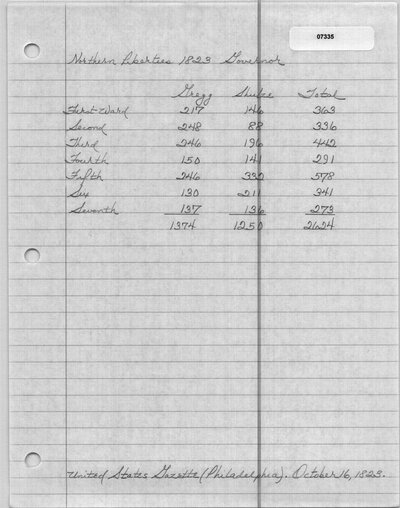 07335
Northern Liberties 1823 Governor
Gregg Shulze Total
First Ward 217 146 363
Second 248 88 336
Third 246 196 442
Fourth 150 141 291
Fifth 246 332 578
Six 130 211 341
Seventh 137 136 273
1374 1250 2624
United States Gazette (Philadelphia). October 16, 1823.